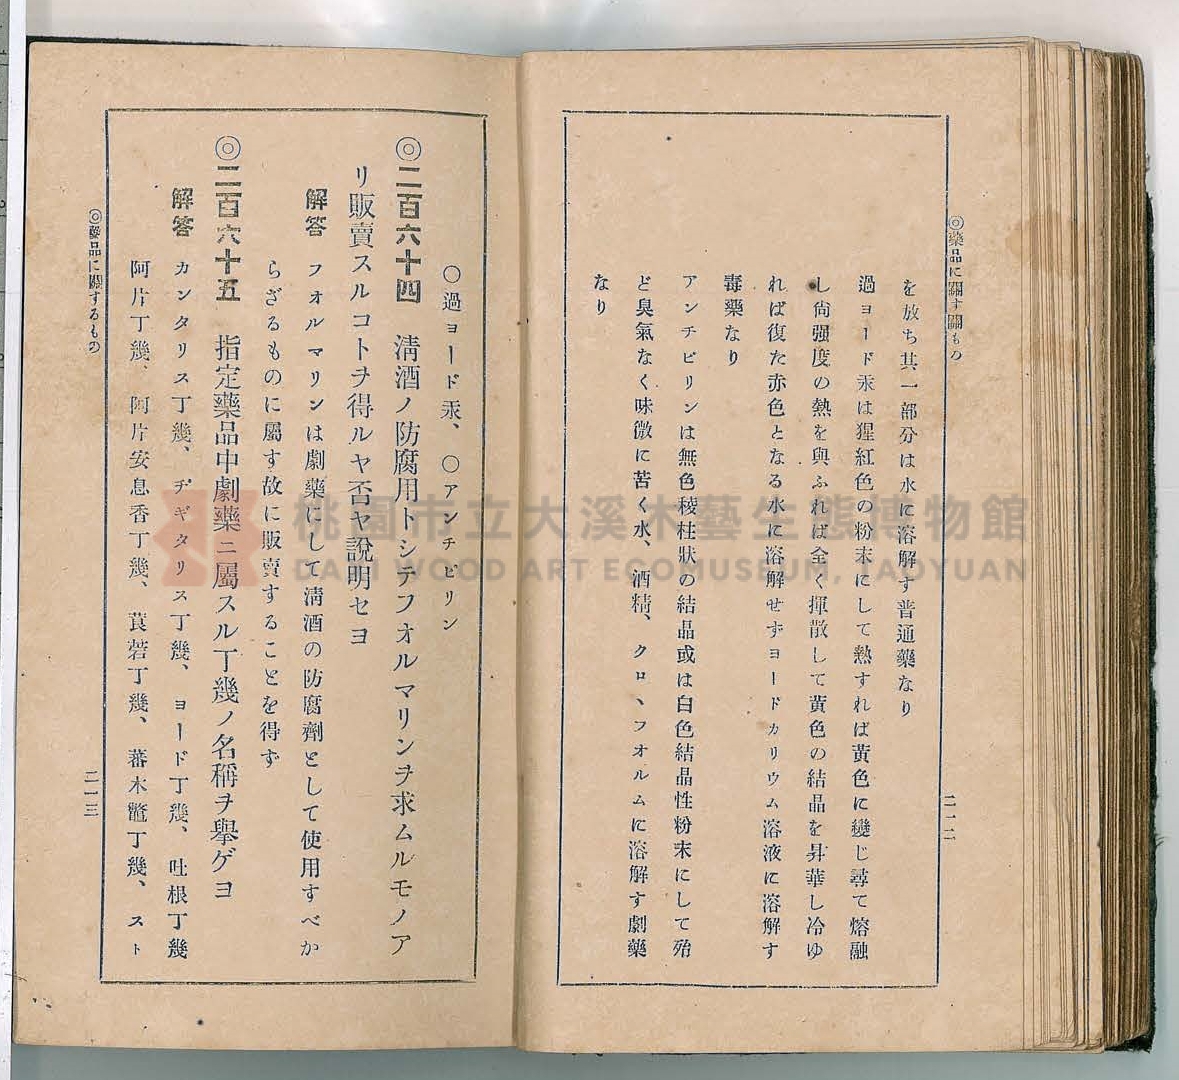 ◎藥品に關す關もの
を放ち其一部分は水に溶解す普通藥なり
過ヨード汞は猩紅色の粉末にして熱すれば黃色に變じ尋て熔融
し尙强度の熱を與ふれば全く揮散して黃色の結晶を昇華し冷ゆ
れば復た赤色となる水に溶解せずヨードカリウム溶液に溶解す
毒藥なり
アンチピリンは無色稜柱狀の結晶或は白色結晶性粉末にして殆
ど臭氣なく味微に苦く水、酒精、クロヽフオルムに溶解す劇藥
なり
二一二
〇過ヨード汞、〇アンチピリン
◎二百六十四 淸酒ノ防腐用トシテフオルマリンヲ求ムルモノア
リ販賣スルコトヲ得ルヤ否ヤ說明セヨ
解答 フオルマリンは劇藥にして淸酒の防腐劑として使用すべか
らざるものに屬す故に販賣することを得ず
◎二百六十五 指定藥品中劇藥ニ屬スル丁幾ノ名稱ヲ擧ゲヨ
解答 カンタリス丁幾、ヂギタリス丁幾、ヨード丁幾、吐根丁幾
阿片丁幾、阿片安息香丁幾、莨菪丁幾、蕃木鼈丁幾、スト
◎藥品に關するもの
二一三
桃園市立大溪木藝生態博物館
DAXI WOOD ART ECOMUSEUM, TAOYUAN